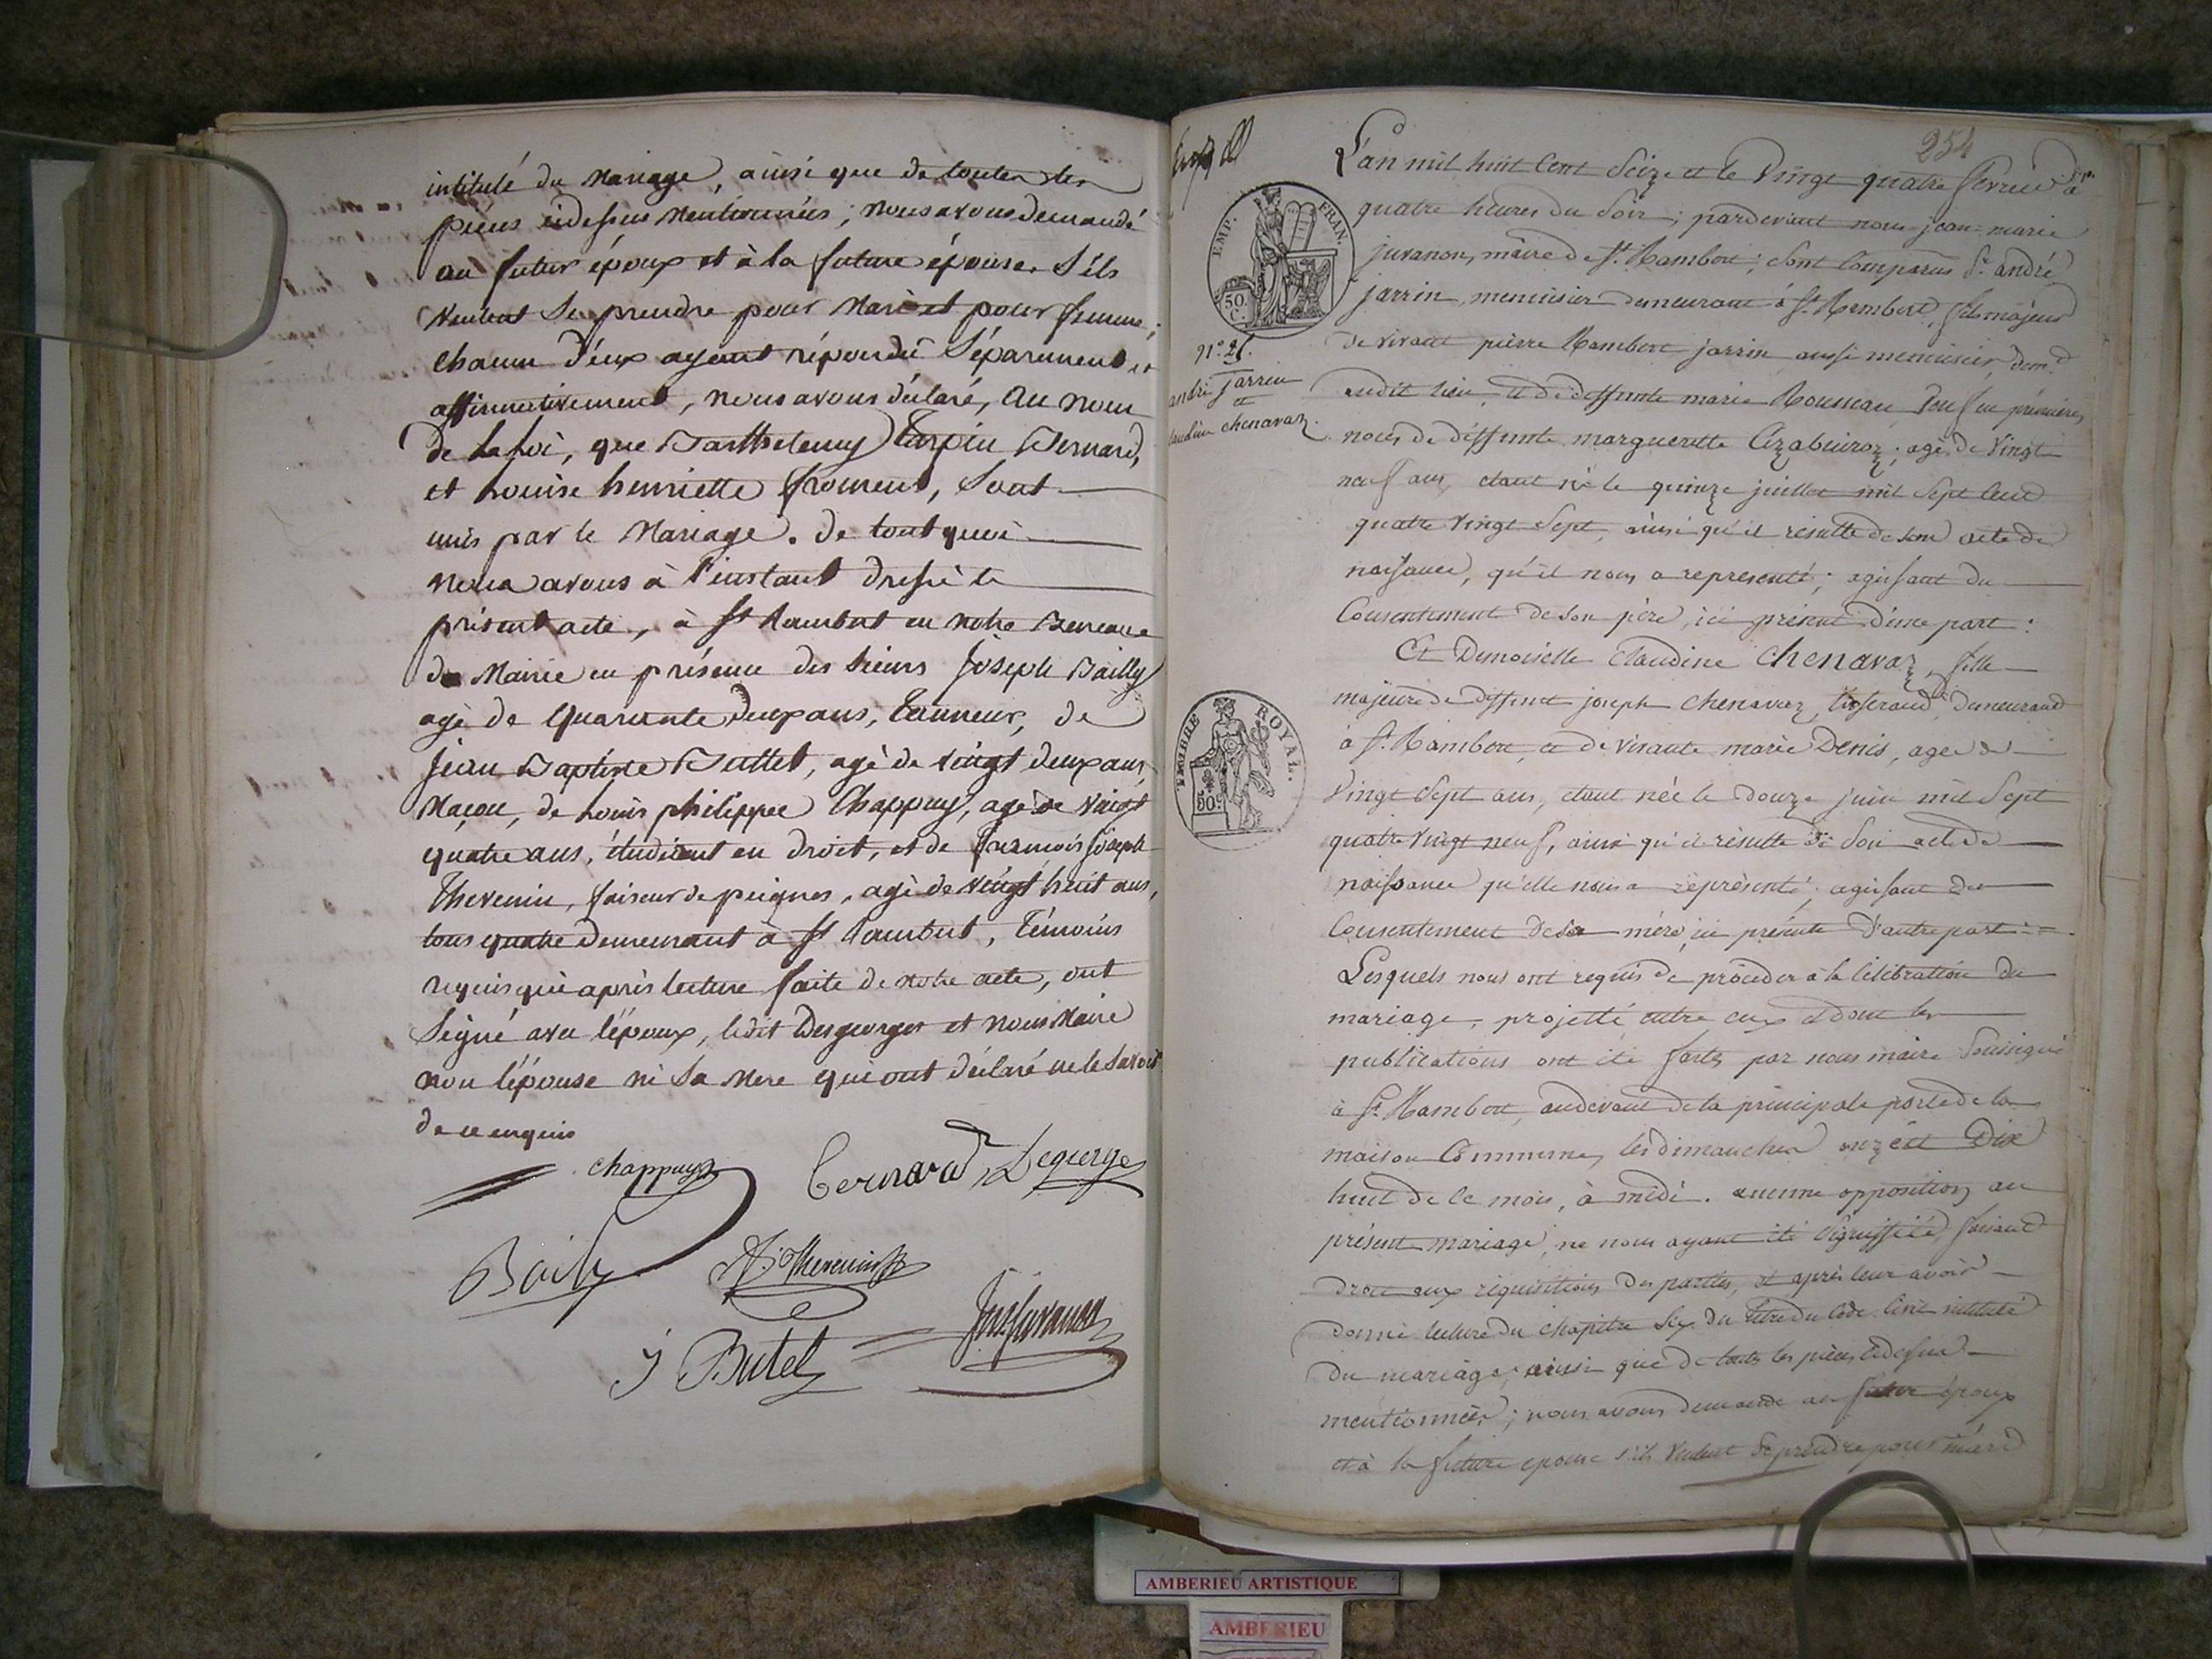 intitulé du Mariage, ainsi que de toutes les
pièces cidessus mentionnées; nous avons demandé
au futur époux et à la future épouse, s'ils
veulent se prendre pour Mari et pour femme;
chacun d'eux ayant répondu séparément et
affirmativement, nous avons déclaré, au nom
de la loi, que Barthelemy Turpin Bernard,
et Louise henriette froment, sont
unis par le Mariage. de tout quoi
nous avons à l'instant dressé le
présent acte, à St Rambert en notre Bureau
de Mairie en présence des sieurs Joseph Bailly
agé de quarante deux ans, tanneur, de
Jean Baptiste Buttet, agé de vingt deux ans,
Maçon, de Louis philippe Chappuy, agé de vingt
quatre ans, étudiant en droit, et de françois Joseph
Thevenin, faiseur de peignes, agé de vingt huit ans,
tous quatre demeurant à St Rambert, témoins
requis qui après lecture faite de notre acte, ont
signé avec l'époux, ledit Desgeorges et nous Maire
non l'épouse ni sa Mere qui ont déclaré ne le savoir
de ce enquis
chappuy Bernard Degeorge
Baily Thevenin
J Butel Juvanon
254
L'an mil huit cent seize et le vingt quatre fevrier à
quatre heures du soir; pardevant nous jean-marie
juvanon, maire de St. Rambert; sont comparus Sr. andré
jarrin, menuisier demeurant à St. Rambert, fils majeur
de vivant pierre Rambert jarrin aussi menuisier, demt
audit lieu, et de deffunte marie Rousseau, veuf en premières
noces de deffunte marguerite ; agé de vingt
neuf ans, étant né le quinze juillet mil sept cent
quatre vingt sept, ainsi qu'il résulte de son acte de
naissance, qu'il nous a representé; agissant du
Consentement de son père, ici présent d'une part:
Et Demoiselle Claudine Chenavaz, fille
majeure de deffunt joseph chenavaz, tisserand, demeurant
à St. Rambert, et de vivante marie Denis, agée de
vingt sept ans, étant née le douze juin mil sept
quatre vingt neuf, ainsi qu'il résulte de son acte de
naissance qu'elle nous a représenté, agissant du
Consentement de sa mère, ici présente d'autre part:
Lesquels nous ont requis de procéder à la Célébration du
mariage, projetté entre eux et dont les
publications ont été faites par nous maire soussigné
à St. Rambert, audevant de la principale porte de la
maison Commune, les dimanches onze et Dix
huit de ce mois, à midi. aucune opposition au
présent mariage, ne nous ayant été signiffiée, faisant
droit aux réquisitions des parties, et après leur avoir
donné lecture du chapitre six du titre du Code Civil intitulé
du mariage, ainsi que de toutes les pièces cidessus
mentionnées; nous avons demandé au futur époux
et à la future épouse s'ils veulent se prendre pour mari
EMP. FRAN.
50 C.
N°. 21.
andré jarrin
et
claudine chenavaz.
TIMBRE ROYAL.
50 C
AMBERIEU ARTISTIQUE
AMBERIEU